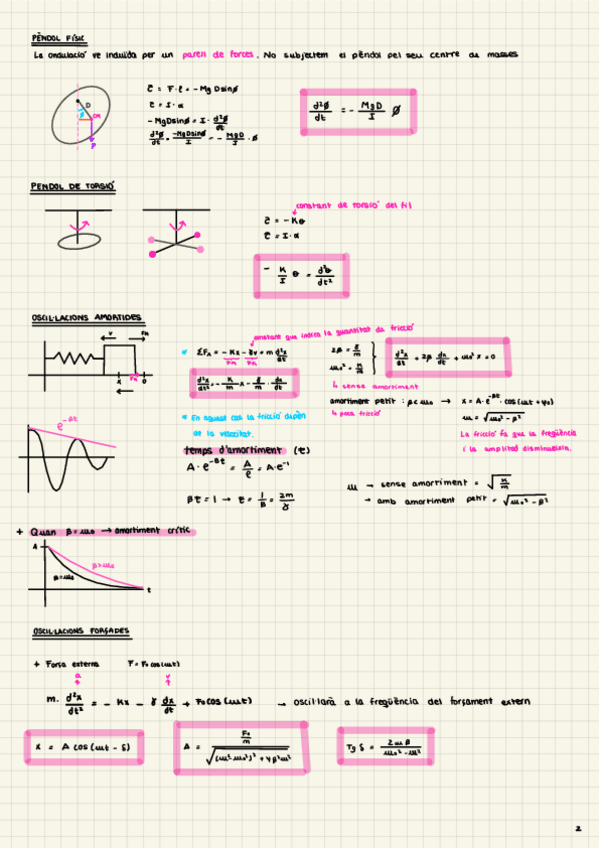 PÈNDOL FÍSIC
La ondulació ve induïda per un parell de forces. No subjectem el pèndol pel seu centre de masses
D
CM
ϕ
P
τ = F·ℓ = -MgDsinϕ
τ = I·α
-MgDsinϕ = I·d²ϕ/dt
d²ϕ/dt = -MgDsinϕ/I = -MgD/I·ϕ
d²ϕ/dt = -MgD/I ϕ
PENDOL DE TORSIÓ
constant de torsió del fil
τ = -Kθ
τ = I·α
-K/I θ = d²θ/dt²
OSCIL·LACIONS AMORTIDES
constant que indica la quantitat de fricció
ΣFx = -Kx - γv = m d²x/dt
d²x/dt² = -K/m x - γ/m · dx/dt
2β = γ/m
ω₀² = K/m
d²x/dt + 2β dx/dt + ω₀² x = 0
↳ sense amortiment
amortiment petit : β < ω₀ → x = A·e^-βt · cos(ωt + φ₀)
↳ poca fricció
ω = √(ω₀² - β²)
* En aquest cas la fricció depèn
de la velocitat.
La fricció fa que la freqüència
i la amplitud disminueixin.
e^-βt
temps d'amortiment (τ)
A·e^-βt = A/e = A·e^-1
βτ = 1 → τ = 1/β = 2m/γ
ω → sense amortiment = √(K/m)
→ amb amortiment petit = √(ω₀² - β²)
+ Quan β = ω₀ → amortiment crític
A
β>ω₀
β=ω₀
t
OSCIL·LACIONS FORÇADES
+ Força externa F = F₀cos(ωt)
a v
m. d²x/dt² = -Kx - γ dx/dt + F₀cos(ωt) → oscil·larà a la freqüència del forçament extern
x = A cos(ωt - δ)
A = F₀/m / √((ω²-ω₀²)² + 4β²ω²)
Tg δ = 2ωβ / ω₀² - ω²
2